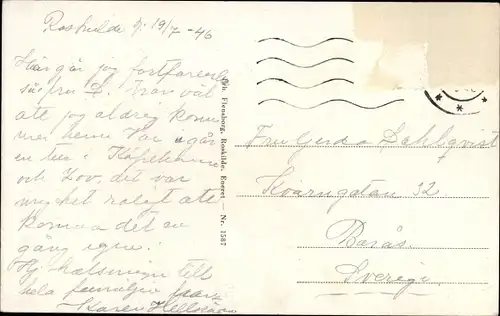 Roskilde d. 19/7 - 46
Här går jag fortfarande
ute jag aldrig kom
mer hem. Var igår
en tur i København
och Zoo, det var
mycket roligt att
komma dit en
gång igen.
Hj. hälsningar till
hela familjen från
Karen
Ph. Flensborg, Roskilde. Eneret — Nr. 1587
Fru Gerda Dahlqvist
Kvarngatan 32
Borås.
Sverige.